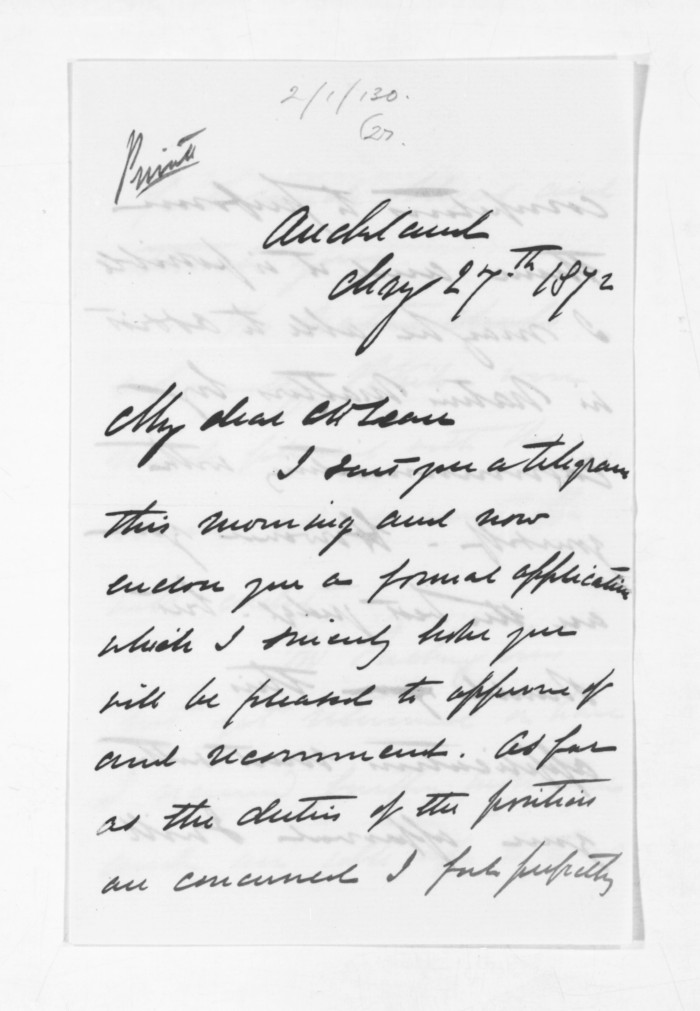 2/1/130.
Private
Auckland
May 27th 1872
My dear McLean
I sent you a telegram
this morning and now
enclose you a formal application
which I sincerely hope you
will be pleased to approve of
and recommend. As far
as the duties of the position
are concerned I feel perfectly